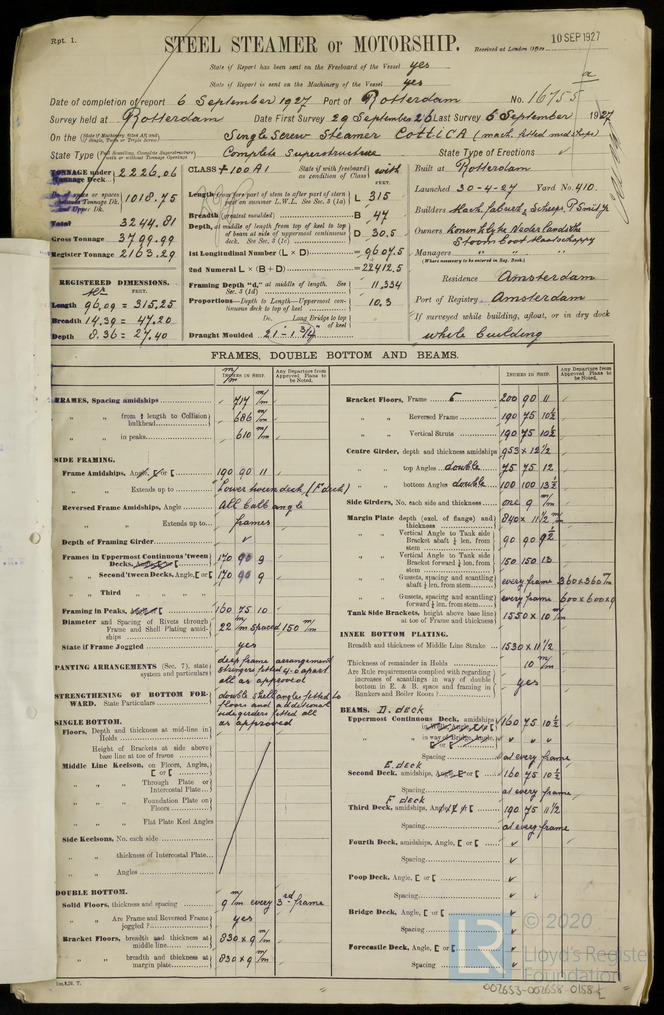 Rpt. 1.
STEEL STEAMER or MOTORSHIP.
Received at London Office 10 SEP 1927
State if Report has been sent on the Freeboard of the Vessel yes
State if Report is sent on the Machinery of the Vessel yes
Date of completion of report 6 September 1927 Port of Rotterdam No. 16755
Survey held at Rotterdam Date First Survey 29 September 26 Last Survey 6 September 1927
On the Single Screw Steamer COTTICA (mach. fitted midships)
State Type Complete Superstructure State Type of Erections ✓
TONNAGE under Tonnage Deck 2226.06
1018.75
Total 3244.81
Gross Tonnage 3799.99
Register Tonnage 2163.29
REGISTERED DIMENSIONS.
FEET.
Length 96,09 = 315,25
Breadth 14.39 = 47.20
Depth 8.36 = 27.40
CLASS +100A1 State if with freeboard as condition of Class with
FEET.
L 315
Breadth (greatest moulded) B 47
D 30.5
1st Longitudinal Number (L × D) = 9607.5
2nd Numeral L × (B + D) = 22412.5
Framing Depth "d," at middle of length. See Sec. 3 (1d) 11,334
Proportions—Depth to Length—Uppermost continuous deck to top of keel 10.3
Do. Long Bridge to top of keel
Draught Moulded 21'-1 3/4"
Built at Rotterdam
Launched 30-4-27 Yard No. 410.
Builders Mach. fabriek & Scheeps. P. Smit Jr
Owners Koninklyke Nederlandsche
Stoomboot Maatschappy
Managers " " "
(Where necessary to be entered in Reg. Book.)
Residence Amsterdam
Port of Registry Amsterdam
If surveyed while building, afloat, or in dry dock
while building
FRAMES, DOUBLE BOTTOM AND BEAMS.
INCHES IN SHIP. Any Departure from Approved Plans to be Noted.
FRAMES, Spacing amidships 717 m/m
" " from 1/5 length to Collision bulkhead 686 m/m
" " in peaks 610 m/m
SIDE FRAMING.
Frame Amidships, Angle, [ or [ 190 90 11
" " Extends up to Lower tween deck (F deck)
Reversed Frame Amidships, Angle All bulb angle
" " Extends up to frames
Depth of Framing Girder ✓
Frames in Uppermost Continuous 'tween Decks 170 90 9
" Second 'tween Decks, Angle, [ or [ 170 90 9
" Third " " "
Framing in Peaks 160 75 10
Diameter and Spacing of Rivets through Frame and Shell Plating amidships 22 m/m spaced 150 m/m
State if Frame Joggled yes
PANTING ARRANGEMENTS (Sec. 7), state system and particulars deep frame arrangement
stringers fitted 4-0 apart
all as approved
STRENGTHENING OF BOTTOM FORWARD. State Particulars double shell angles fitted to
floors and additional
side girders fitted all
as approved
SINGLE BOTTOM.
Floors, Depth and thickness at mid-line in Holds
Height of Brackets at side above base at toe of frame
Middle Line Keelson, on Floors, Angles, [ or [
" " Through Plate or Intercostal Plate
" " Foundation Plate on Floors
" " Flat Plate Keel Angles
Side Keelsons, No. each side
" " thickness of Intercostal Plate
" " Angles
DOUBLE BOTTOM.
Solid Floors, thickness and spacing 9 m/m every 3rd frame
" " Are Frame and Reversed Frame joggled? yes
Bracket Floors, breadth and thickness at middle line 830 x 9 m/m
" " breadth and thickness at margin plate 830 x 9 m/m
INCHES IN SHIP. Any Departure from Approved Plans to be Noted.
Bracket Floors, Frame 200 90 11
" " Reversed Frame 190 75 10½
" " Vertical Struts 190 75 10½
Centre Girder, depth and thickness amidships 953 x 12½
" " top Angles double 75 75 12
" " bottom Angles double 100 100 13½
Side Girders, No. each side and thickness one 9 m/m
Margin Plate depth (excl. of flange) and thickness 840 x 11½ m/m
" " Vertical Angle to Tank side Bracket abaft ¼ len. from stem 90 90 9½
" " Vertical Angle to Tank side Bracket forward ¼ len. from stem 150 150 13
" " Gussets, spacing and scantling abaft ¼ len. from stem every frame 360 x 360 7 m
" " Gussets, spacing and scantling forward ¼ len. from stem every frame 600 x 600 x 9
Tank Side Brackets, height above base line at toe of Frame and thickness 1550 x 10 m/m
INNER BOTTOM PLATING.
Breadth and thickness of Middle Line Strake 1530 x 11½
Thickness of remainder in Holds 10 m/m
Are Rule requirements complied with regarding increases of scantlings in way of double bottom in E. & B. space and framing in Bunkers and Boiler Room? yes
BEAMS. D. deck
Uppermost Continuous Deck, amidships 160 75 10½
" " in way of Bridge, Angle, [ or [ ✓ ✓ ✓
Spacing at every frame
E. deck
Second Deck, amidships, Angle, [ or [ 160 75 10½
Spacing at every frame
F deck
Third Deck, amidships, Angle, [ or [ 190 75 11½
Spacing at every frame
Fourth Deck, amidships, Angle, [ or [ ✓
Spacing ✓
Poop Deck, Angle, [ or [ ✓
Spacing ✓
Bridge Deck, Angle, [ or [ ✓
Spacing ✓
Forecastle Deck, Angle, [ or [ ✓
Spacing ✓
LR © 2020
Lloyd's Register
Foundation
002653-002658-0158